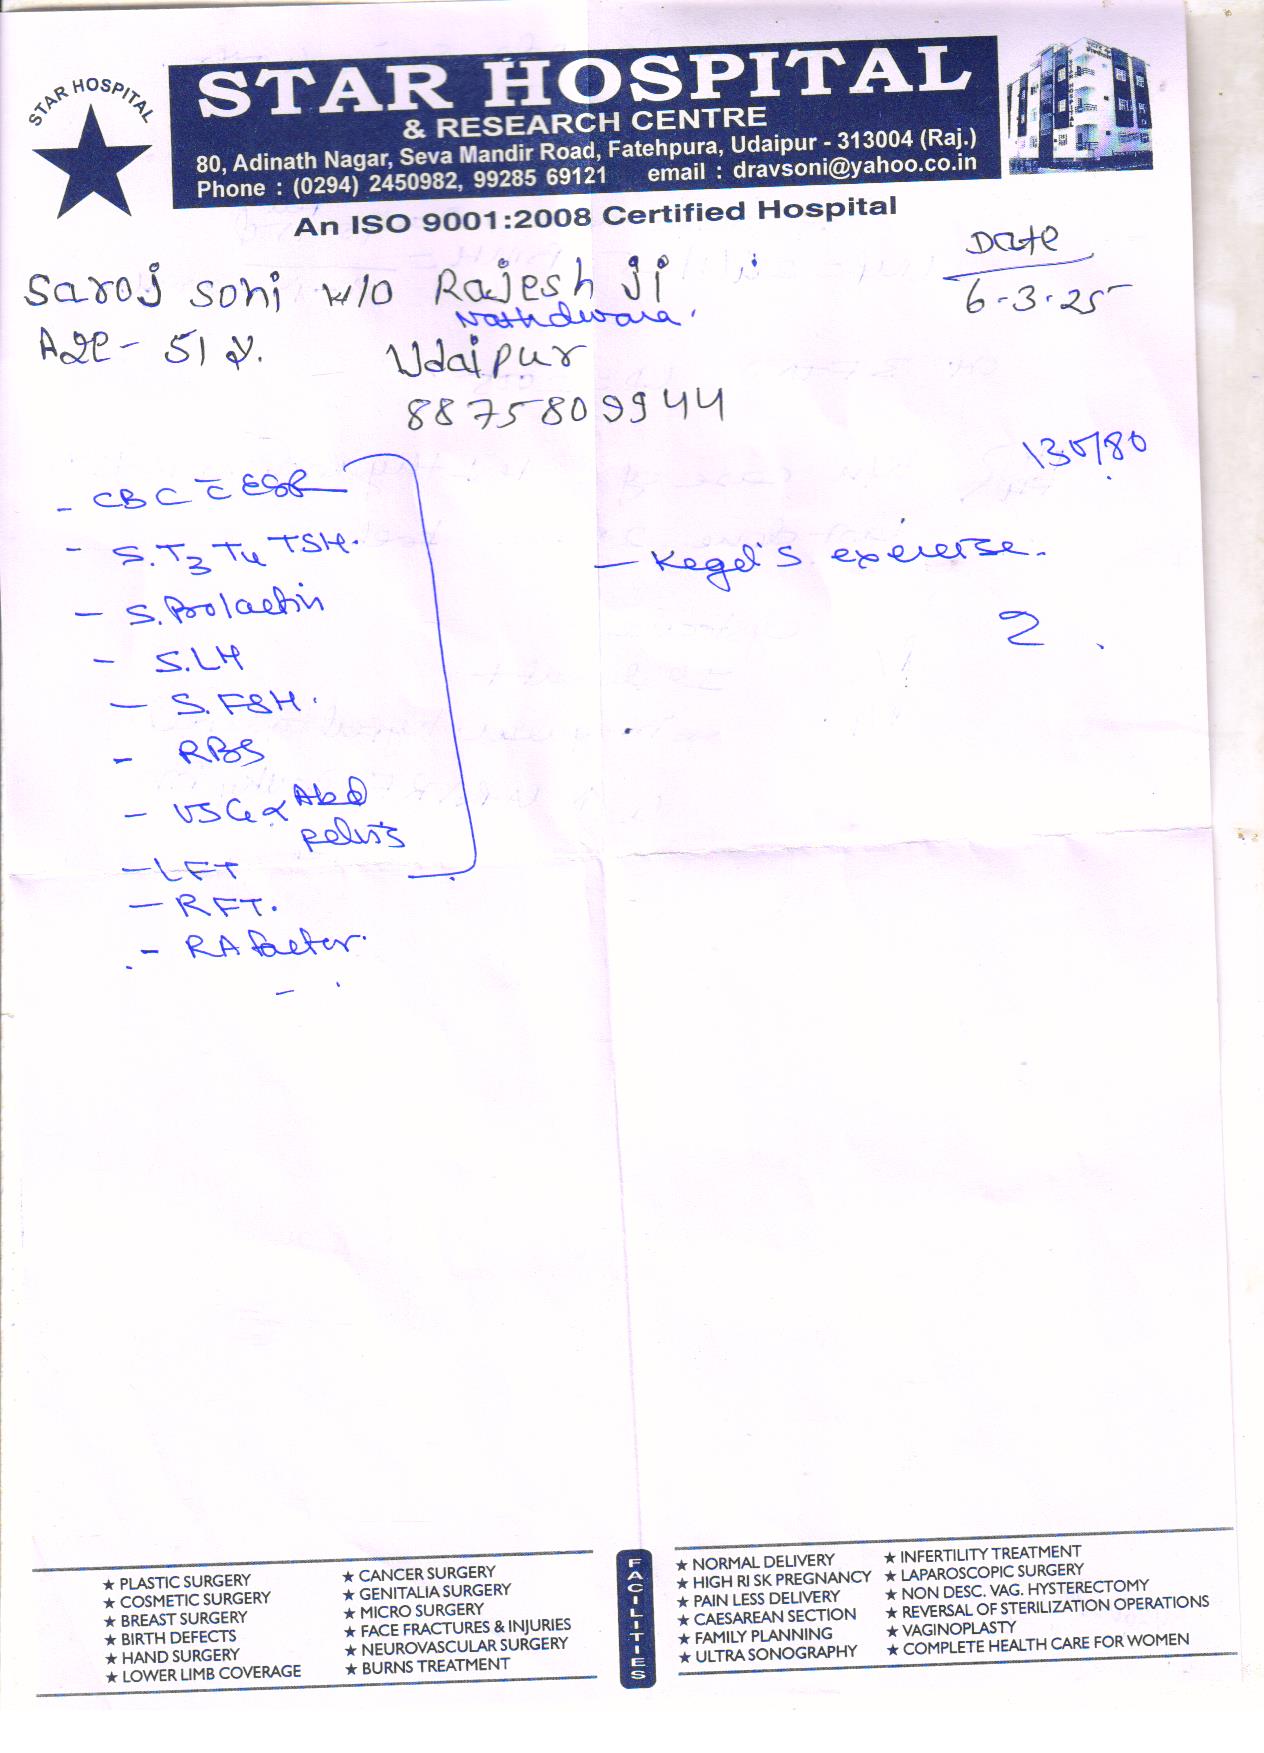 STAR HOSPITAL
STAR HOSPITAL
& RESEARCH CENTRE
80, Adinath Nagar, Seva Mandir Road, Fatehpura, Udaipur - 313004 (Raj.)
Phone : (0294) 2450982, 99285 69121 email : dravsoni@yahoo.co.in
An ISO 9001:2008 Certified Hospital
Date
6-3-25
Saroj Soni w/o Rajesh Ji
Nathdwara.
Age - 51 y. Udaipur
8875809944
130/80
- CBC c̅ ESR
- S. T3 T4 TSH.
- S. Prolactin
- S. LH
- S. FSH.
- RBS
- USG Abd
pelvis
- LFT
- RFT.
- RA factor.
- Kegel's exercise.
2
★ PLASTIC SURGERY
★ COSMETIC SURGERY
★ BREAST SURGERY
★ BIRTH DEFECTS
★ HAND SURGERY
★ LOWER LIMB COVERAGE
★ CANCER SURGERY
★ GENITALIA SURGERY
★ MICRO SURGERY
★ FACE FRACTURES & INJURIES
★ NEUROVASCULAR SURGERY
★ BURNS TREATMENT
FACILITIES
★ NORMAL DELIVERY
★ HIGH RI SK PREGNANCY
★ PAIN LESS DELIVERY
★ CAESAREAN SECTION
★ FAMILY PLANNING
★ ULTRA SONOGRAPHY
★ INFERTILITY TREATMENT
★ LAPAROSCOPIC SURGERY
★ NON DESC. VAG. HYSTERECTOMY
★ REVERSAL OF STERILIZATION OPERATIONS
★ VAGINOPLASTY
★ COMPLETE HEALTH CARE FOR WOMEN